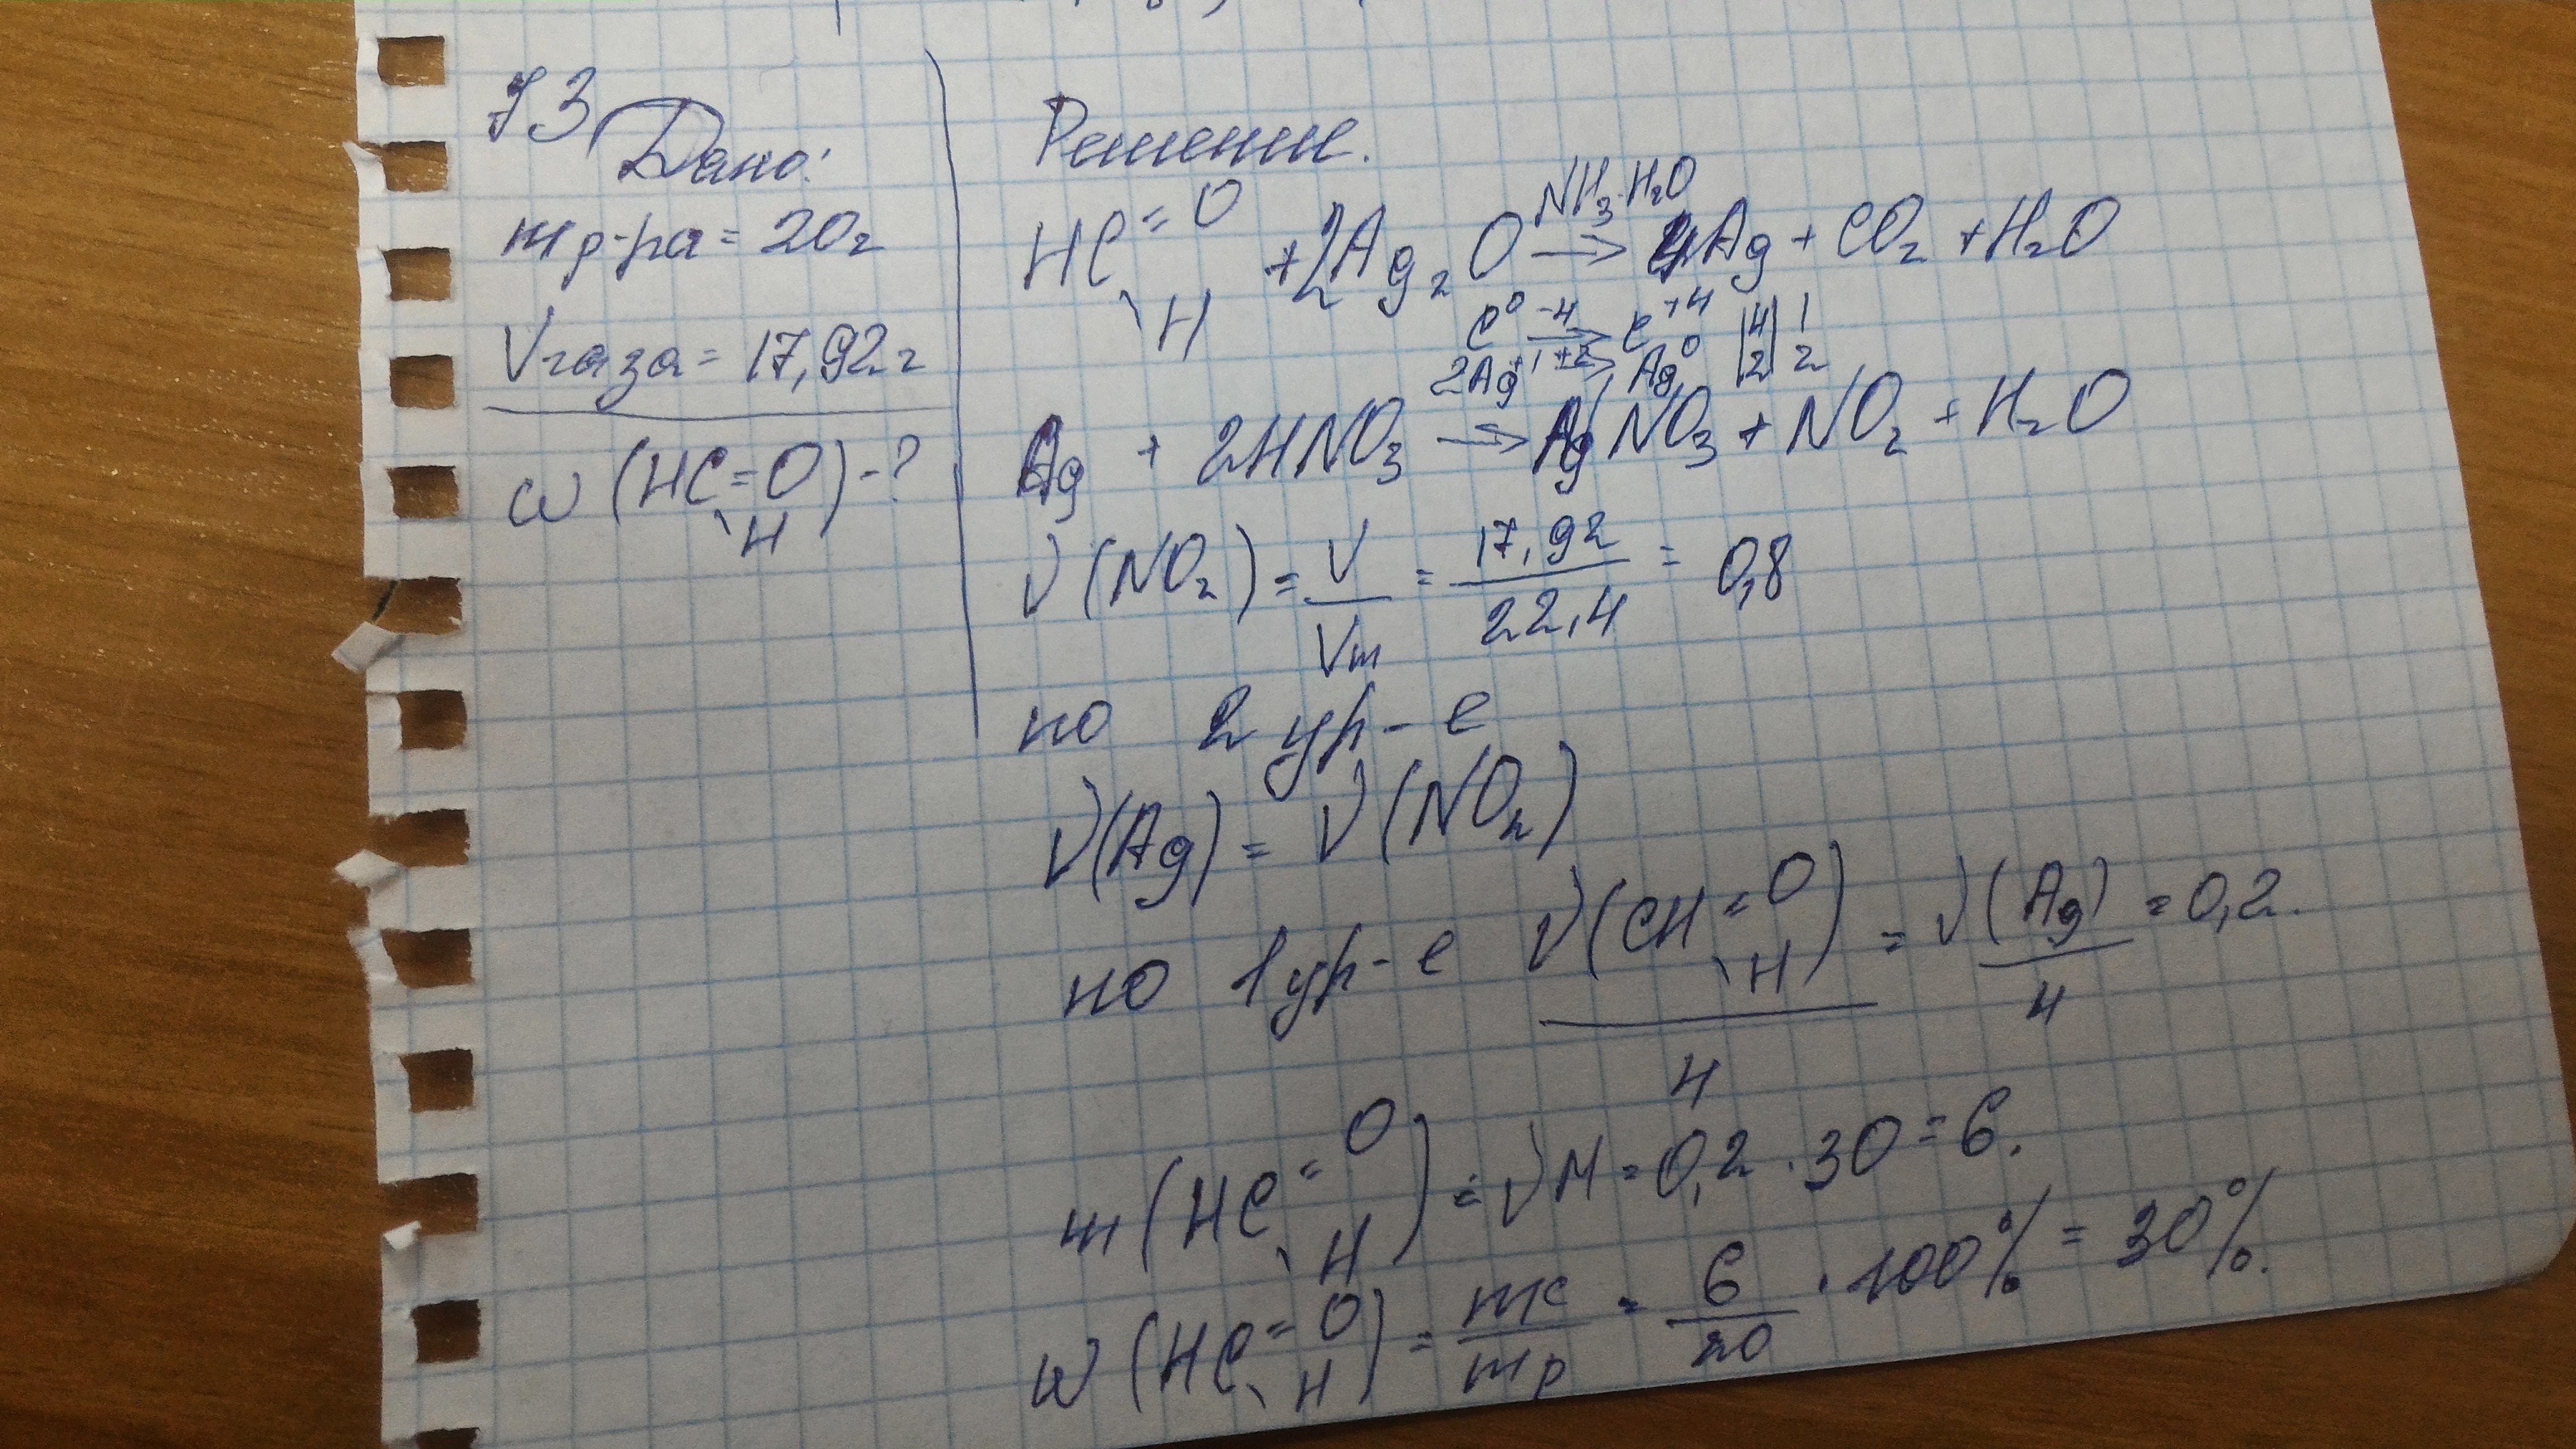 73
Дано:
mр-ра = 20г
Vгаза = 17,92г
ω (HC=O\H) - ?
Решение.
HC=O\H + 2Ag₂O NH₃·H₂O → 4Ag + CO₂ + H₂O
C⁰ -4 → C⁺⁴ |4| 1
2Ag⁺¹ +2 → Ag⁰ |2| 2
Ag + 2HNO₃ → AgNO₃ + NO₂ + H₂O
ν(NO₂) = V/Vm = 17,92/22,4 = 0,8
по 2 ур-е
ν(Ag) = ν(NO₂)
по 1 ур-е ν(CH=O\H)/4 = ν(Ag)/4 = 0,2.
m(HC=O\H) = νM = 0,2 · 30 = 6.
W(HC=O\H) = mс/mр = 6/20 · 100% = 30%.